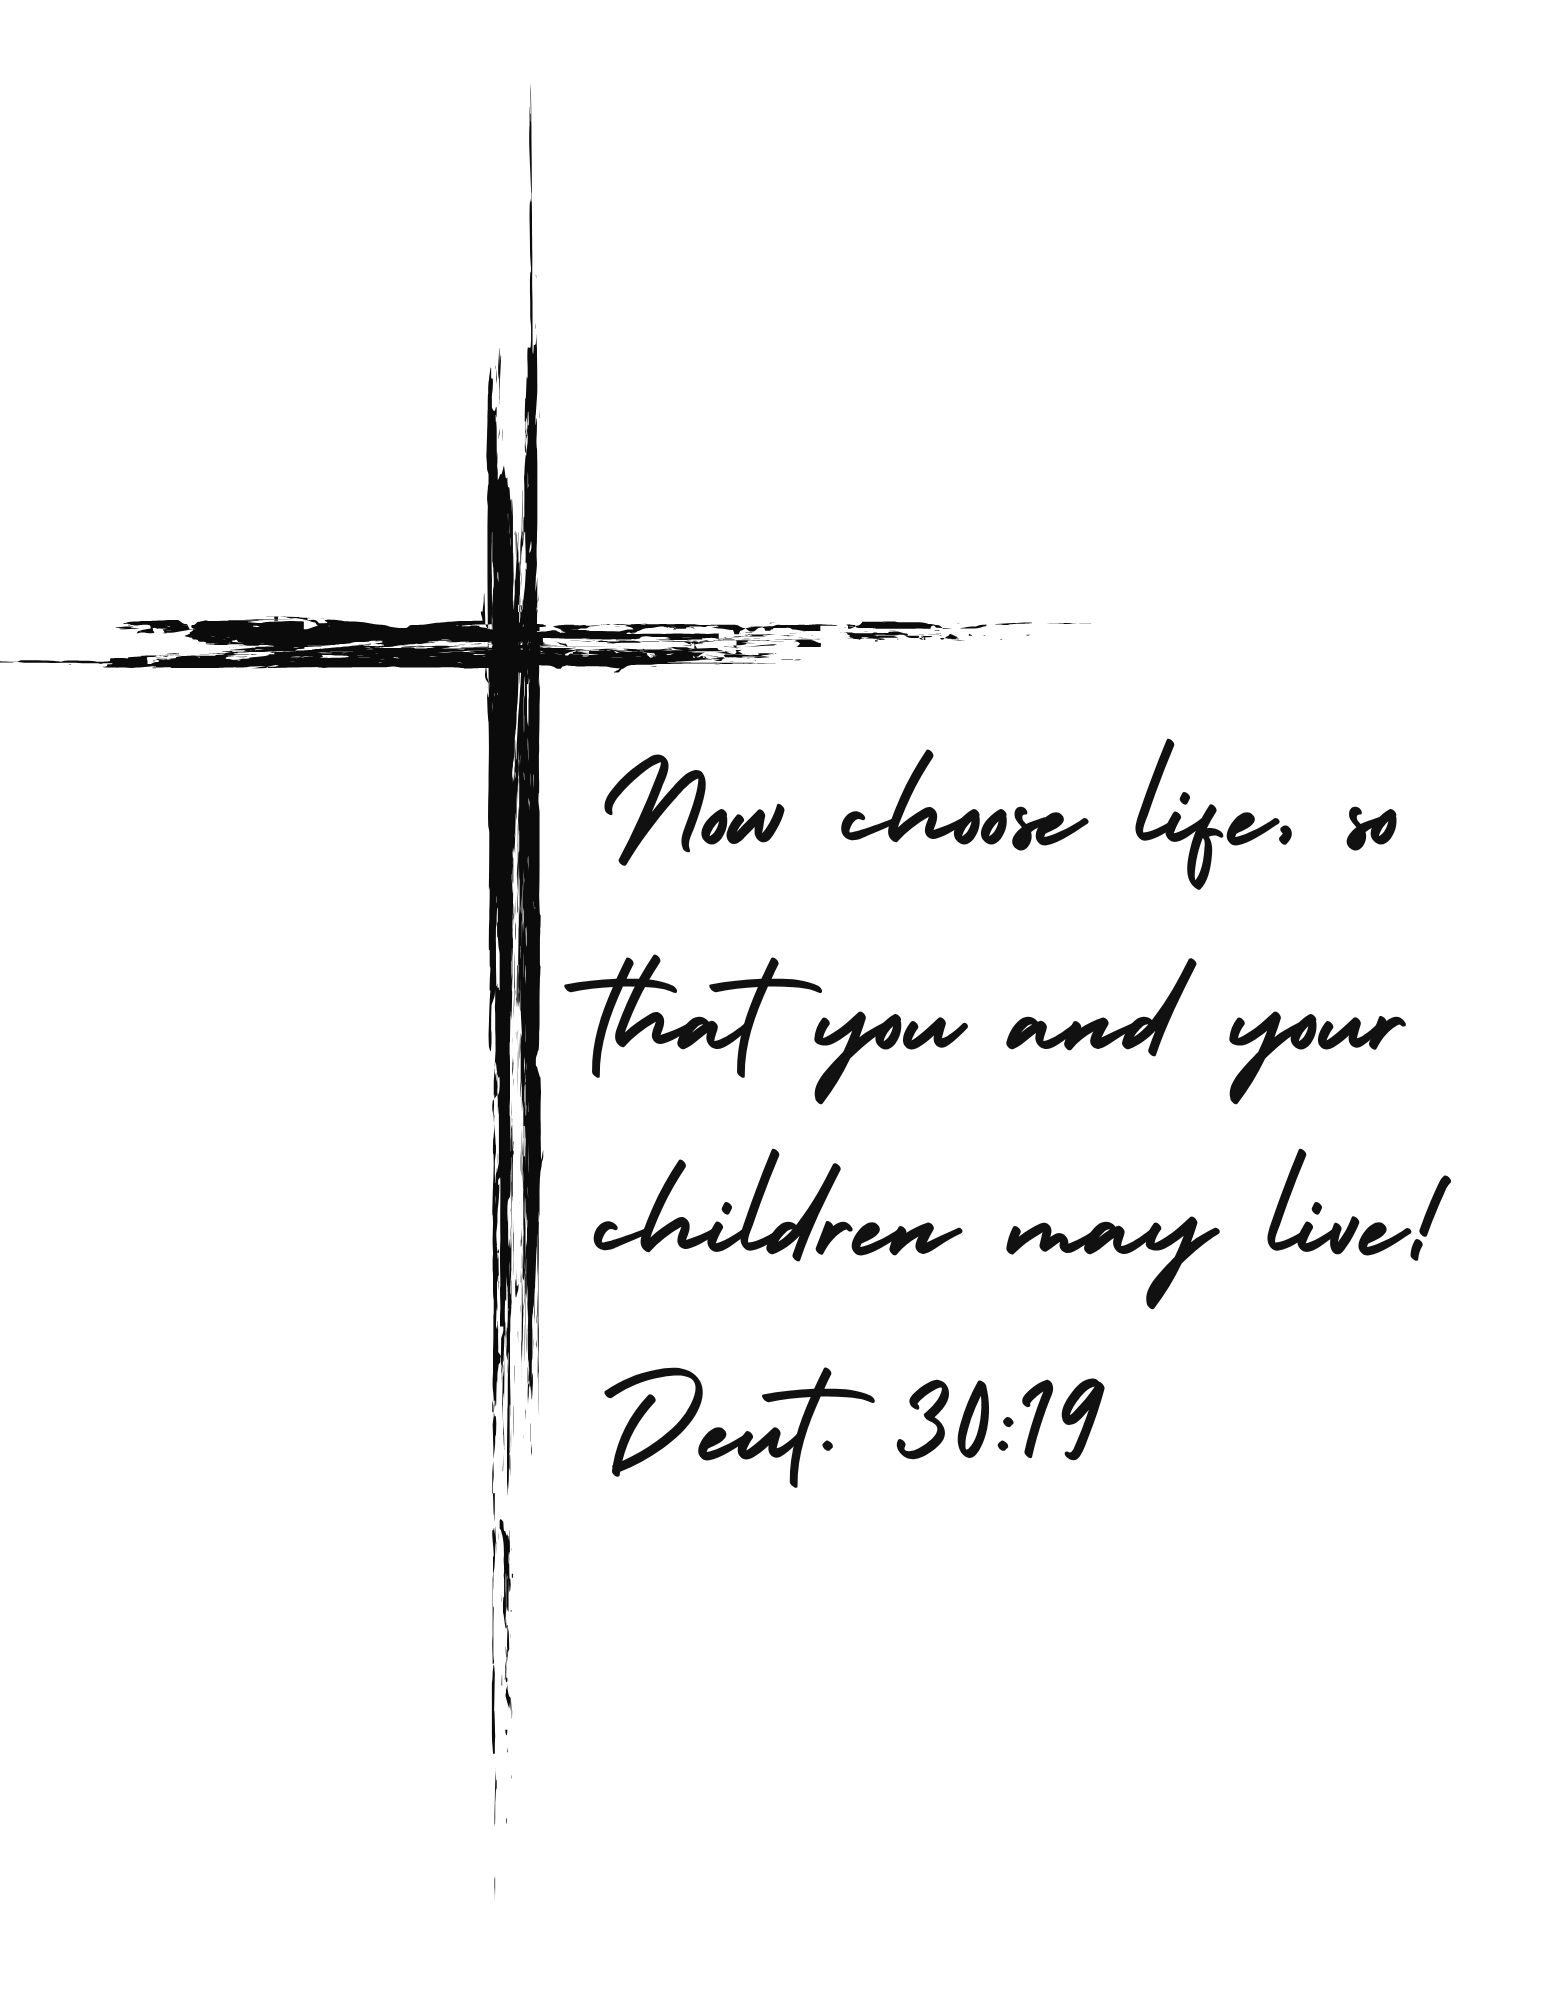 Now choose life, so
that you and your
children may live!
Deut. 30:19